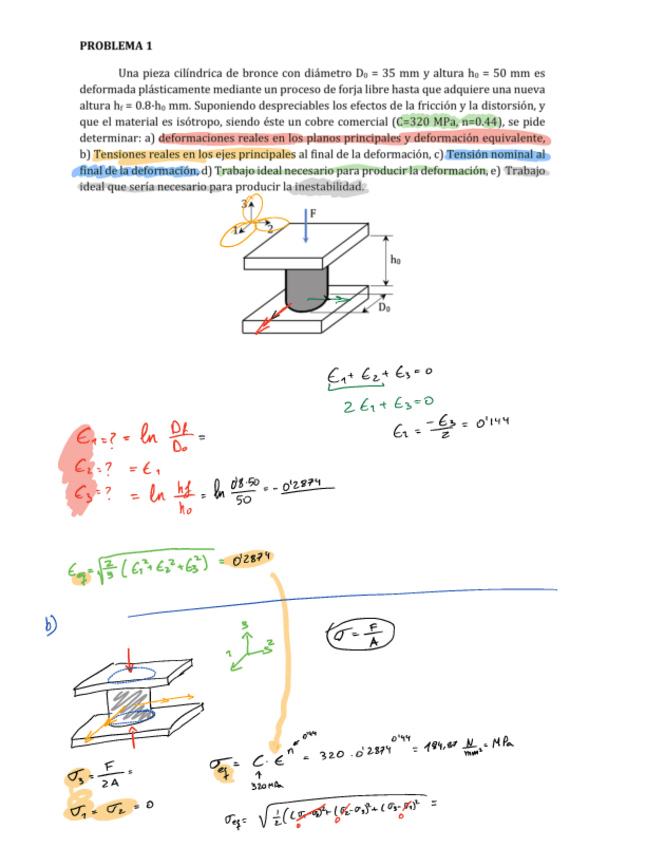 PROBLEMA 1
Una pieza cilíndrica de bronce con diámetro D₀ = 35 mm y altura h₀ = 50 mm es
deformada plásticamente mediante un proceso de forja libre hasta que adquiere una nueva
altura h_f = 0.8·h₀ mm. Suponiendo despreciables los efectos de la fricción y la distorsión, y
que el material es isótropo, siendo éste un cobre comercial (C=320 MPa, n=0.44), se pide
determinar: a) deformaciones reales en los planos principales y deformación equivalente,
b) Tensiones reales en los ejes principales al final de la deformación, c) Tensión nominal al
final de la deformación, d) Trabajo ideal necesario para producir la deformación, e) Trabajo
ideal que sería necesario para producir la inestabilidad.
3
F
1
2
h₀
D₀
ε₁ + ε₂ + ε₃ = 0
2 ε₁ + ε₃ = 0
ε₁ = -ε₃/2 = 0'144
ε₁ = ? = ln Df/D₀ =
ε₂ = ? = ε₁
ε₃ = ? = ln hf/h₀ = ln 0'8·50/50 = - 0'2874
εq = √(2/3 (ε₁² + ε₂² + ε₃²)) = 0'2874
b)
3
1
2
σ = F/A
σeq = C · ε^n = 320 · 0'2874^0'44 = 184,87 N/mm² = MPa
0'44
320 MPa
σ₃ = F/2A =
σ₁ = σ₂ = 0
σeq = √(1/2 ((σ₁-σ₂)² + (σ₂-σ₃)² + (σ₃-σ₁)²)) =
0
0
0